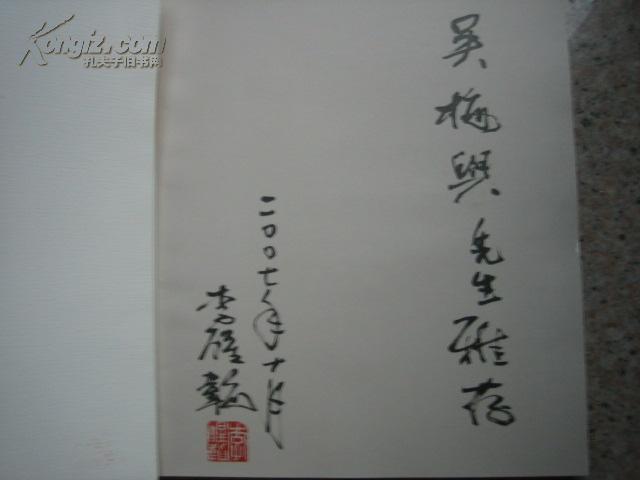 Kongfz.com
孔夫子旧书网
吴梅與先生雅存
二〇〇七年十月
李